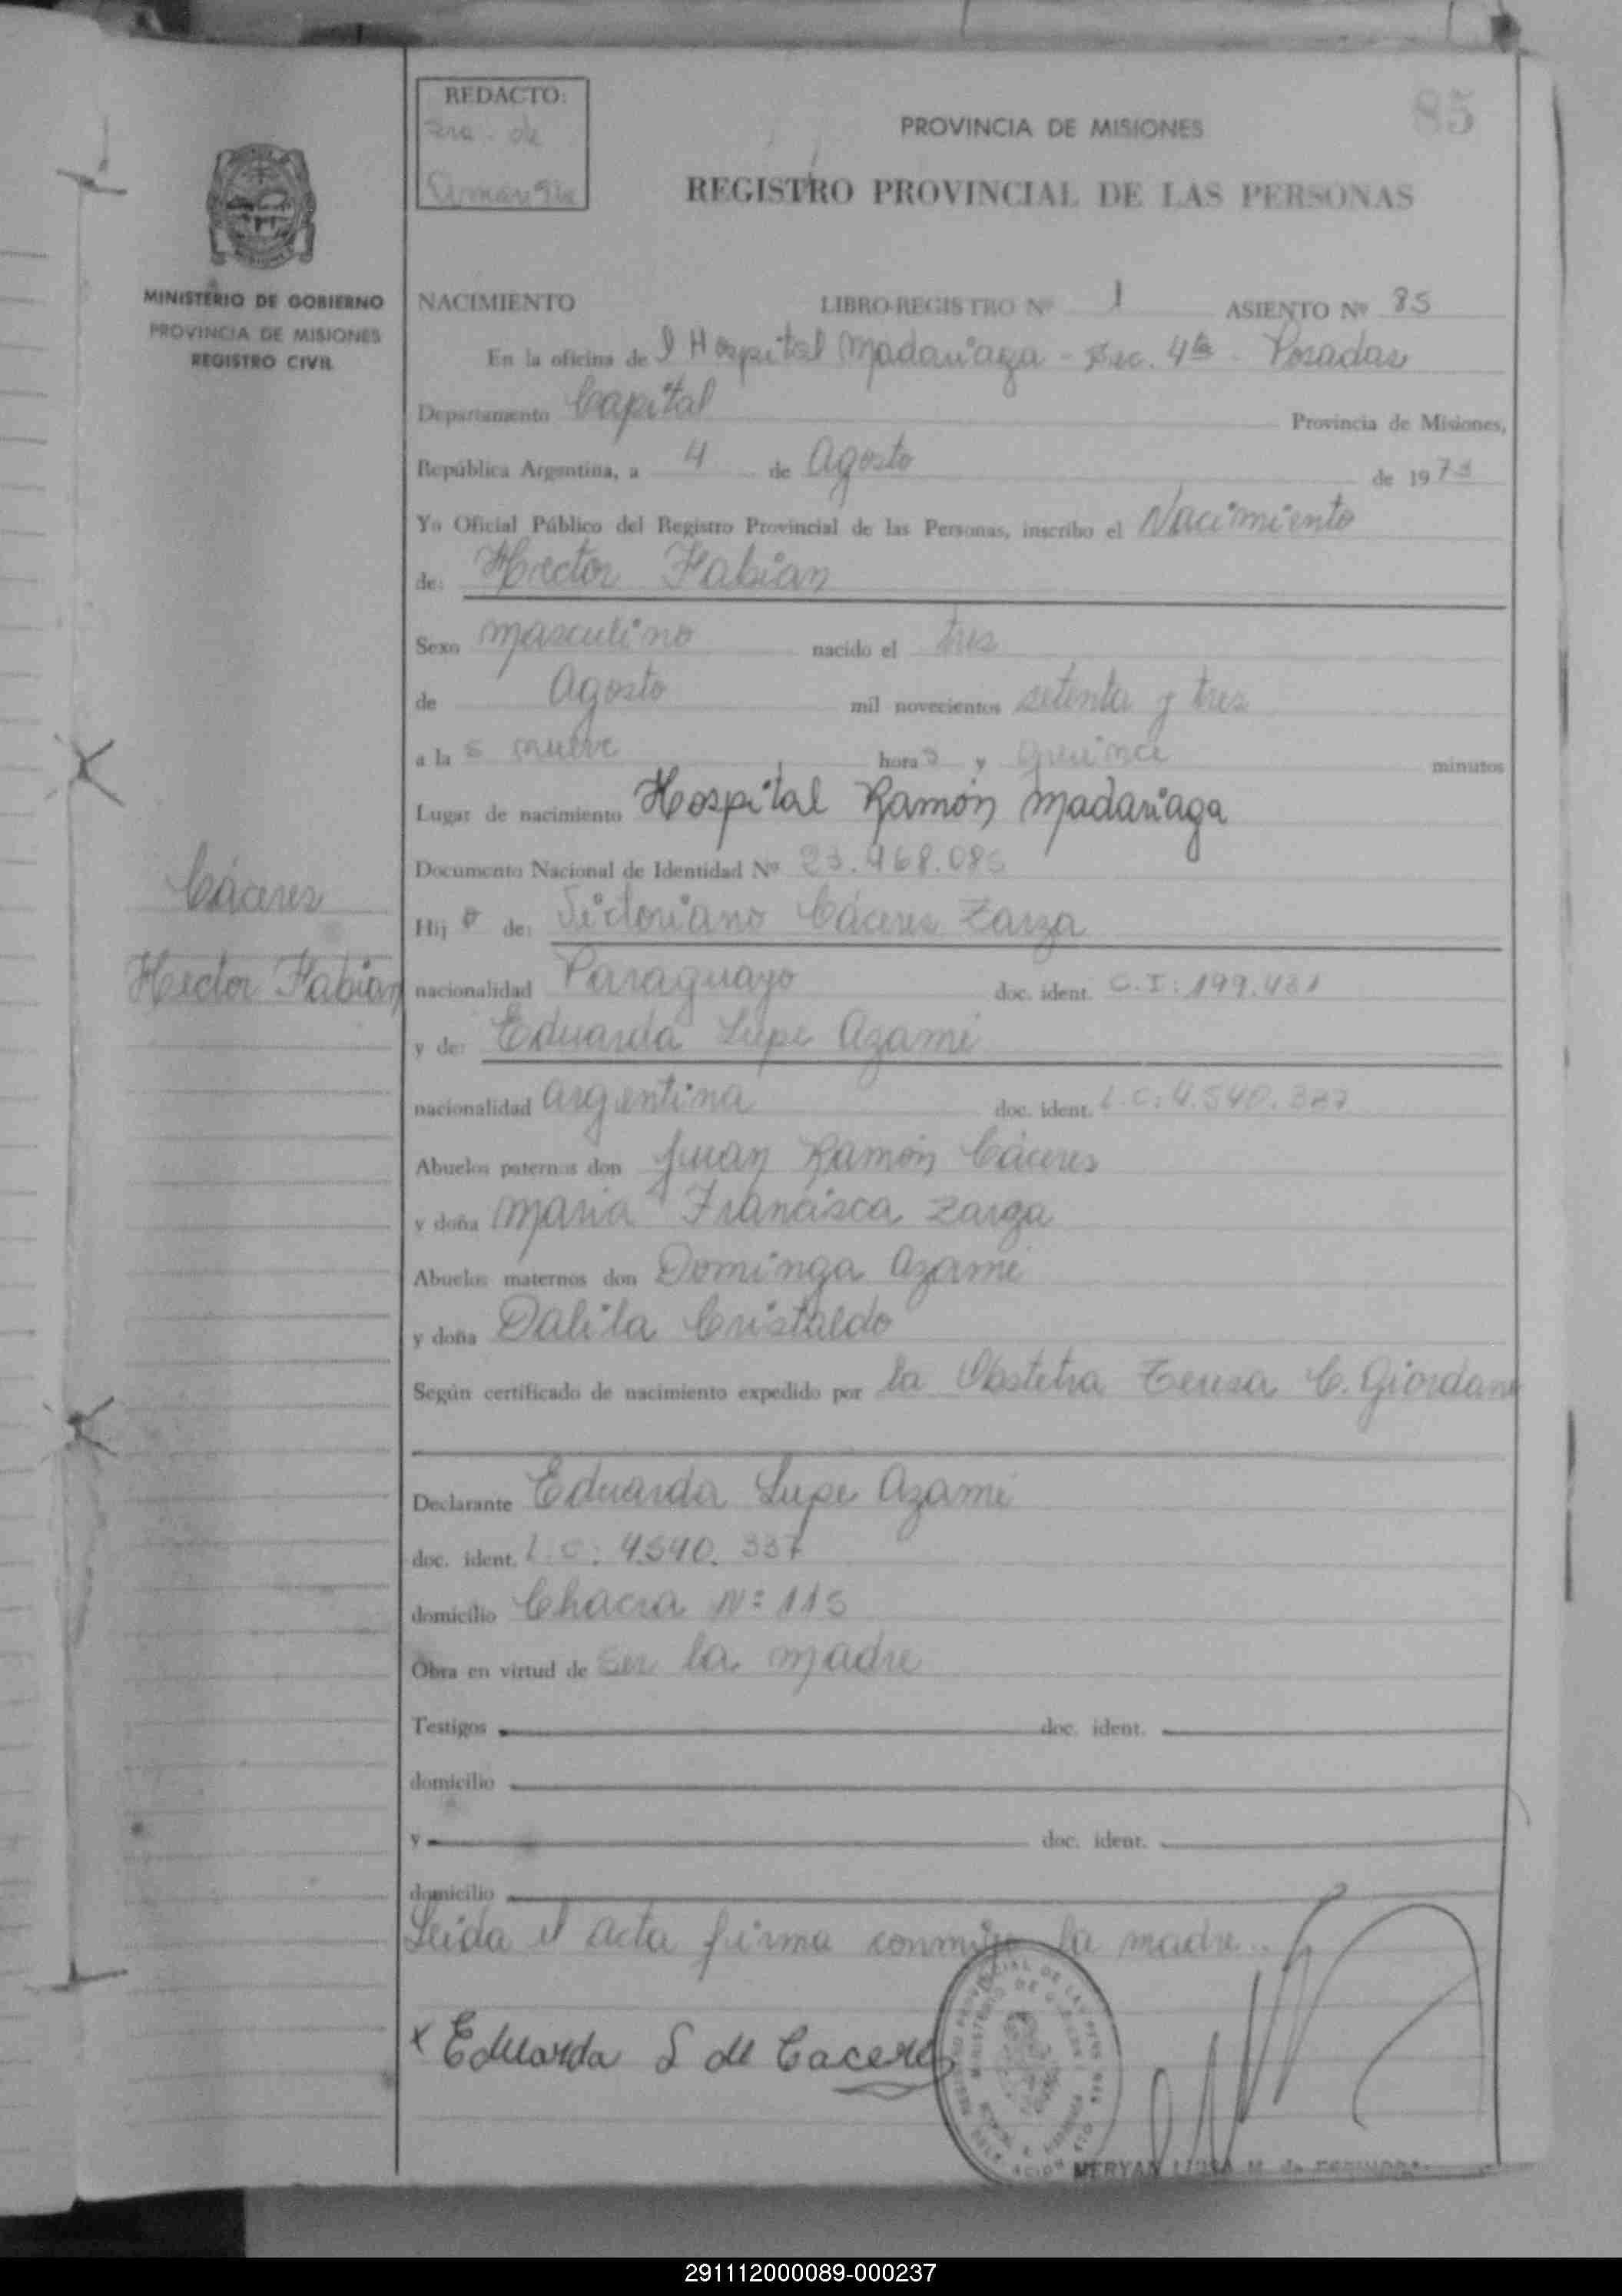 REDACTO:
Sra. de
85
PROVINCIA DE MISIONES
REGISTRO PROVINCIAL DE LAS PERSONAS
MINISTERIO DE GOBIERNO
PROVINCIA DE MISIONES
REGISTRO CIVIL
NACIMIENTO LIBRO-REGISTRO Nº 1 ASIENTO Nº 85
En la oficina de l Hospital Madariaga - Sec. 4ta - Posadas
Departamento Capital Provincia de Misiones,
República Argentina, a 4 de Agosto de 1973
Yo Oficial Público del Registro Provincial de las Personas, inscribo el Nacimiento
de: Hector Fabian
Sexo masculino nacido el tres
de Agosto mil novecientos setenta y tres
a la s nueve hora s y quince minutos
Lugar de nacimiento Hospital Ramón Madariaga
Documento Nacional de Identidad Nº 23.468.086
Cáceres
Hector Fabian
Hij o de: Victoriano Cáceres Zarza
nacionalidad Paraguayo doc. ident. C.I: 199.481
y de: Eduarda Lupe Azami
nacionalidad argentina doc. ident. L.C: 4.540.337
Abuelos paternos don Juan Ramón Cáceres
y doña Maria Francisca Zarza
Abuelos maternos don Dominga Azami
y doña Dalila Cristaldo
Según certificado de nacimiento expedido por la Obstetra Teresa C. Giordano
Declarante Eduarda Lupe Azami
doc. ident. L.C: 4.540.337
domicilio Chacra Nº 115
Obra en virtud de ser la madre
Testigos doc. ident.
domicilio
y doc. ident.
domicilio
Leida el acta firma conmigo la madre..
x Eduarda L de Caceres
MERYAN LUISA M. de
291112000089-000237